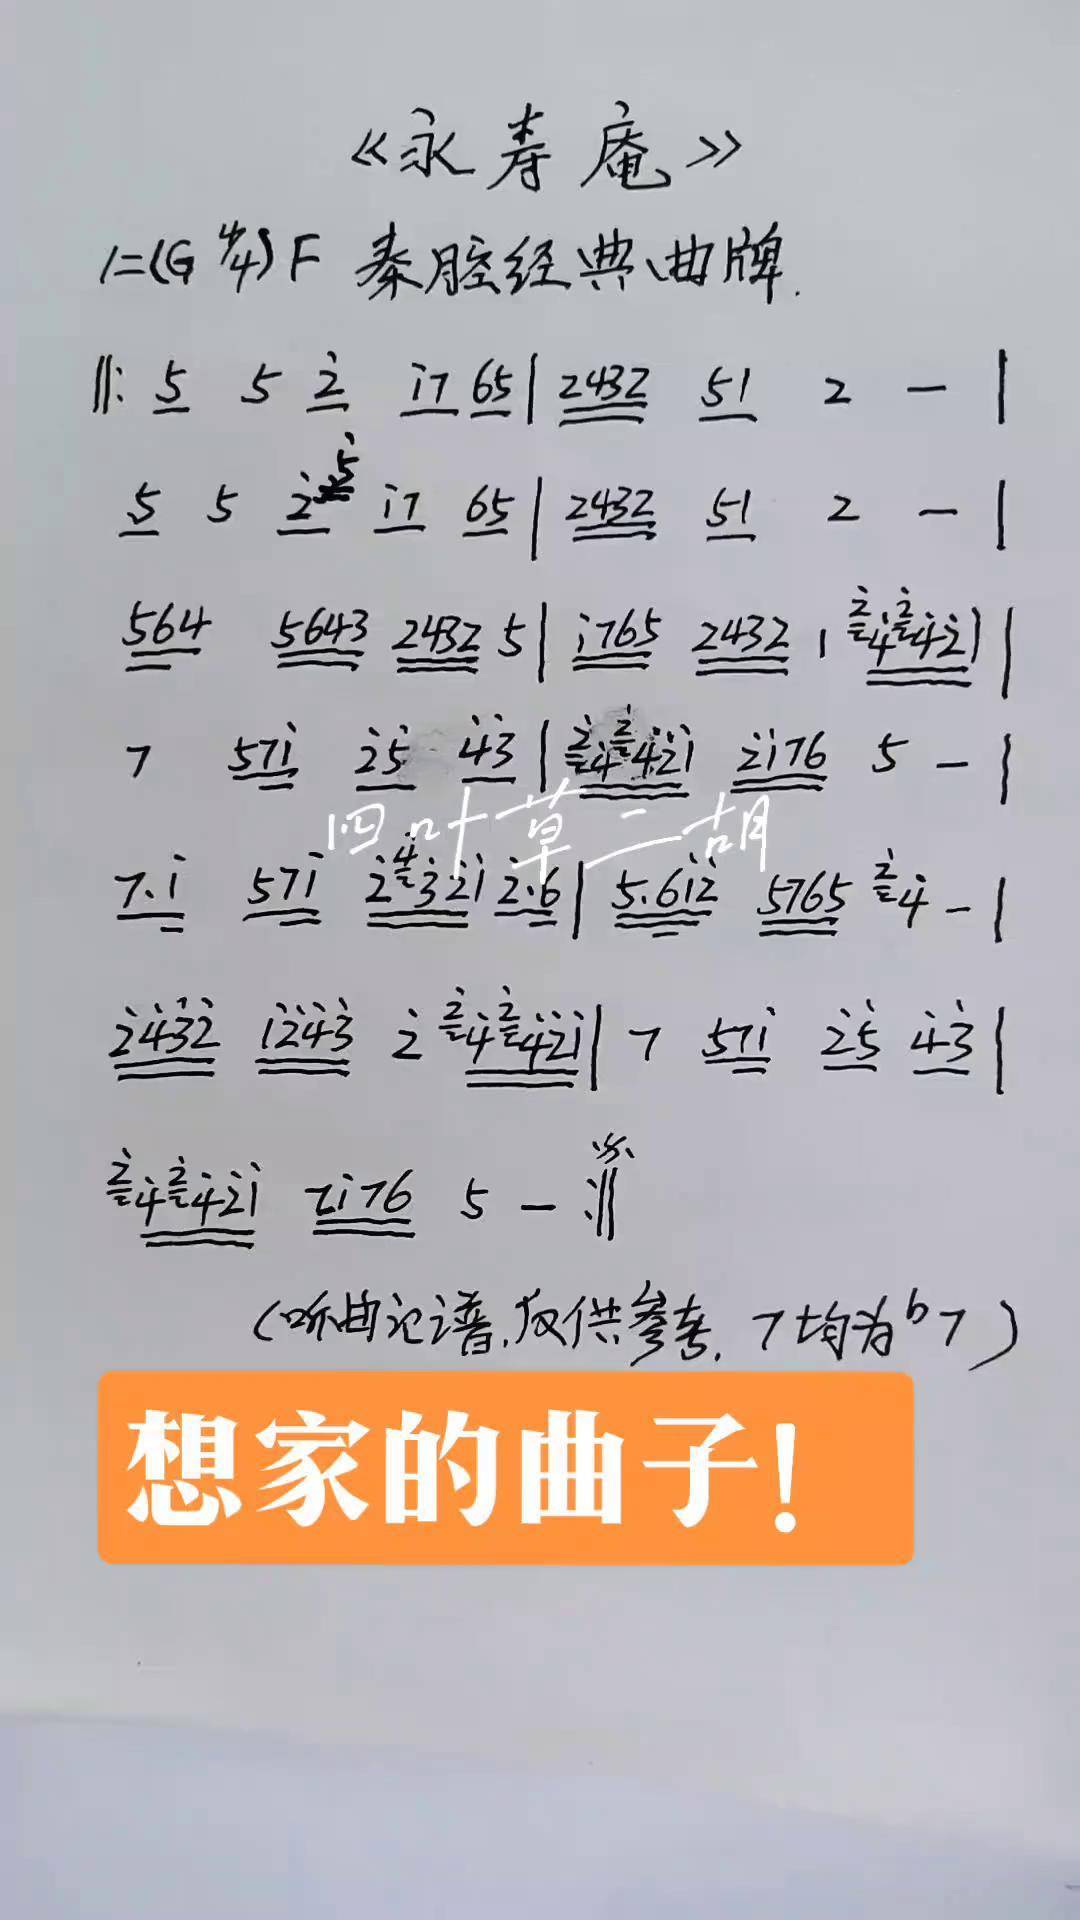 《永寿庵》
1=(G 4/4) F 秦腔经典曲牌.
‖: 5 5 2̇ i̇7 65 | 2432 51 2 — |
5 5 2̇ 5̇ i̇7 65 | 2432 51 2 — |
564 5643 2432 5 | i̇765 2432 1 2̇4̇2̇4̇2̇1̇ |
7 571̇ 2̇5̇ 4̇3̇ | 2̇4̇2̇4̇2̇1̇ 2̇1̇76 5 — |
四叶草二胡
7.1̇ 571̇ 2̇4̇3̇2̇1̇ 2̇.6 | 5.61̇2̇ 5765 2̇4̇ — |
2̇4̇3̇2̇ 1̇2̇4̇3̇ 2̇ 2̇4̇2̇4̇2̇1̇ | 7 571̇ 2̇5̇ 4̇3̇ |
2̇4̇2̇4̇2̇1̇ 2̇1̇76 5 — :‖
(听曲记谱,仅供参考, 7均为b7)
想家的曲子!